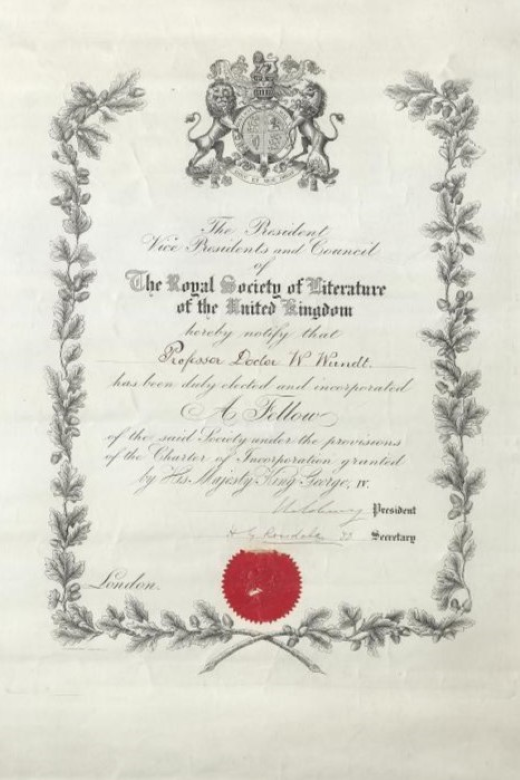 The President
Vice Presidents and Council
of
The Royal Society of Literature
of the United Kingdom
hereby notify that
Professor Doctor W Wundt.
has been duly elected and incorporated
A Fellow
of the said Society under the provisions
of the Charter of Incorporation granted
by His Majesty King George, IV.
President
Secretary
London.